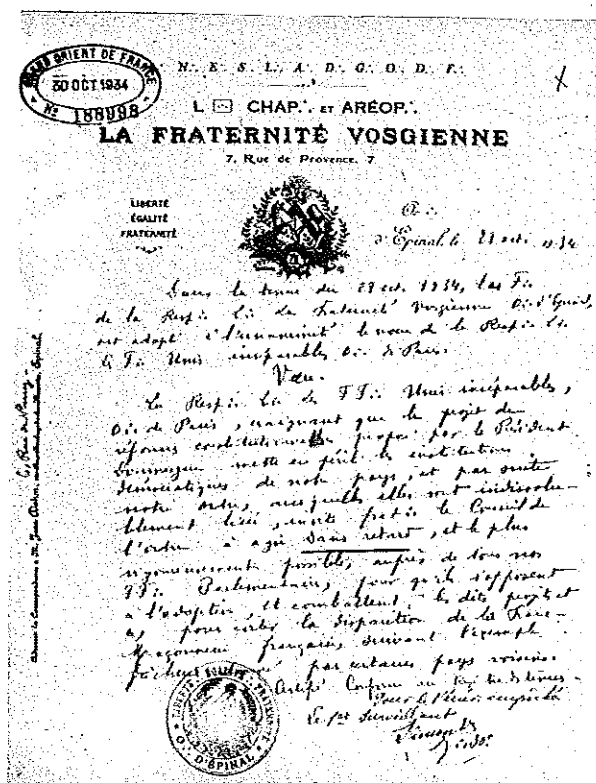 GRAND ORIENT DE FRANCE
30 OCT 1934
N° 188998
N∴ E∴ S∴ L∴ A∴ D∴ G∴ O∴ D∴ F∴
L CHAP∴ ET ARÉOP∴
LA FRATERNITÉ VOSGIENNE
7, Rue de Provence, 7
LIBERTÉ
ÉGALITÉ
FRATERNITÉ
O∴
d'Epinal, le 29 oct. 1934
Dans la tenue du 29 oct. 1934, les F∴
de la Resp∴ L∴ La Fraternité Vosgienne O∴ d'Epinal,
ont adopté à l'unanimité le vœu de la Resp∴ L∴
Unis inséparables O∴ de Paris.
Vœu.
La Resp∴ L∴ les FF∴ Unis inséparables,
O∴ de Paris, craignant que le projet de
réforme constitutionnelle proposé par le Président
Doumergue mette en péril les institutions
démocratiques de notre pays, et par suite
notre ordre, auxquelles elles sont indissolu-
blement liées, invite le Conseil de
l'ordre à agir sans retard, et le plus
vigoureusement possible, auprès de tous nos
FF∴ Parlementaires, pour qu'ils s'opposent
à l'adoption et combattent les dits projets
pour éviter la disparition de la Franc-
Maçonnerie française, suivant l'exemple
par certains pays voisins.
Certifié Conforme
Le 1er Surveillant
O∴ D'ÉPINAL